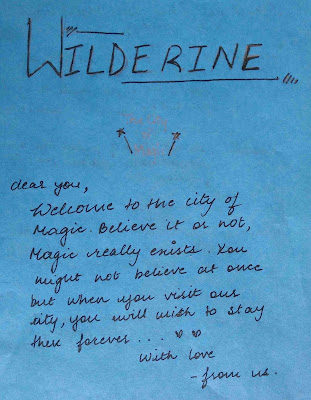 WILDERINE
The city
of
Magic
dear you,
Welcome to the city of
Magic. Believe it or not,
Magic really exists. You
might not believe at once
but when you visit our
city, you will wish to stay
there forever...
With love
- from us.